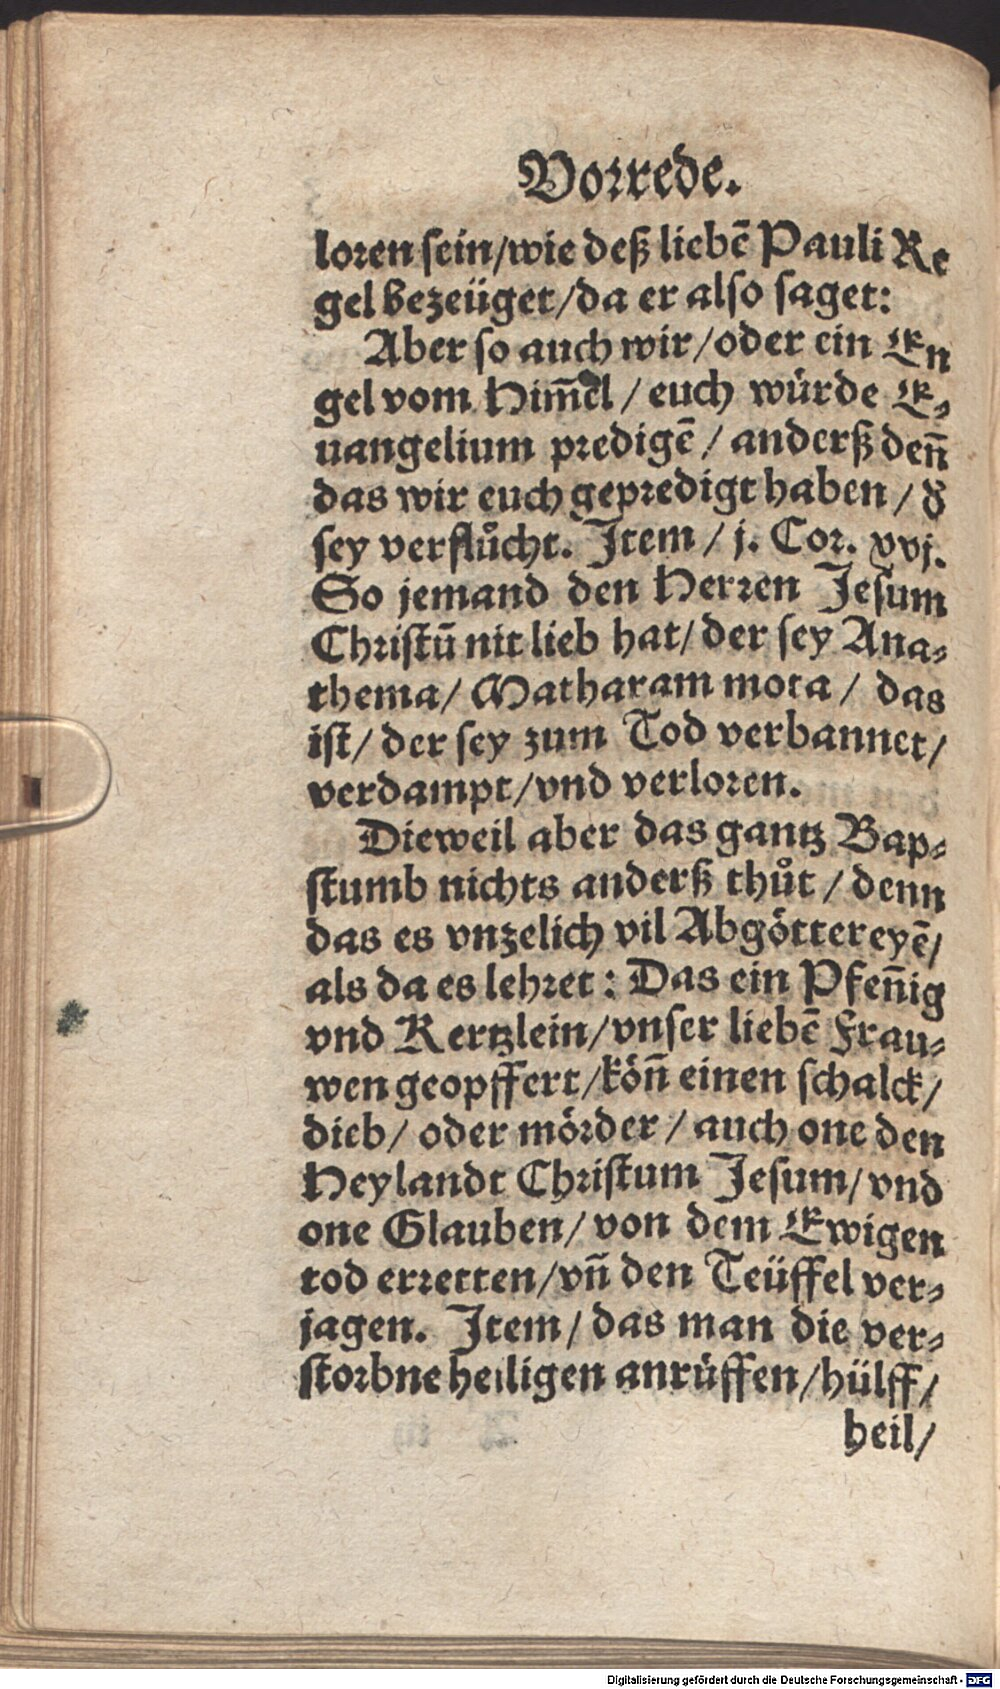 Vorrede.
loren sein/wie deß liebẽ Pauli Re
gel bezeüget/da er also saget:
Aber so auch wir/oder ein En
gel vom Him̃el/ euch würde E⸗
uangelium predigẽ/ anderß den̄
das wir euch gepredigt haben/ d̕
sey verflůcht. Item/ j. Cor. xvj.
So jemand den Herren Jesum
Christū nit lieb hat/ der sey Ana⸗
thema/ Matharam mota/ das
ist/ der sey zum Tod verbannet/
verdampt/vnd verloren.
Dieweil aber das gantz Bap⸗
stumb nichts anderß thůt/ denn
das es vnzelich vil Abgöttereyẽ/
als da es lehret: Das ein Pfen̄ig
vnd Kertzlein/vnser liebẽ Frau⸗
wen geopffert/kön̄ einen schalck/
dieb/ oder mörder/ auch one den
Heylandt Christum Jesum/ vnd
one Glauben/ von dem Ewigen
tod erretten/vn̄ den Teüffel ver⸗
jagen. Item/ das man die ver⸗
storbne heiligen anrüffen/hülff/
heil/
Digitalisierung gefördert durch die Deutsche Forschungsgemeinschaft - DFG